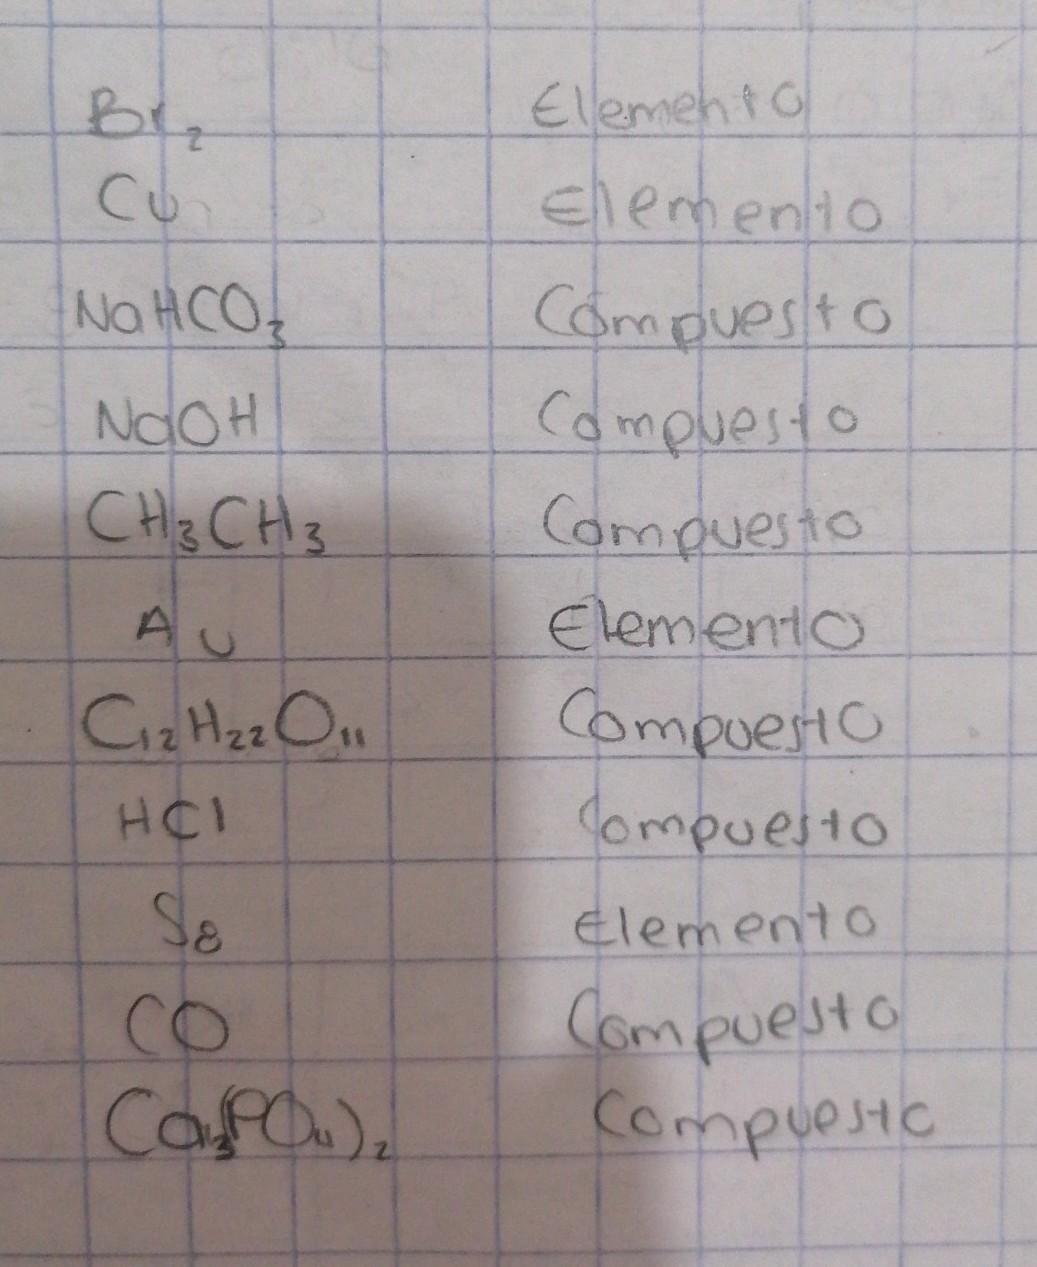 Br₂ Elemento
Cu Elemento
NaHCO₃ Compuesto
NaOH Compuesto
CH₃CH₃ Compuesto
Au Elemento
C₁₂H₂₂O₁₁ Compuesto
HCl Compuesto
S₈ Elemento
CO Compuesto
Ca₃(PO₄)₂ Compuesto